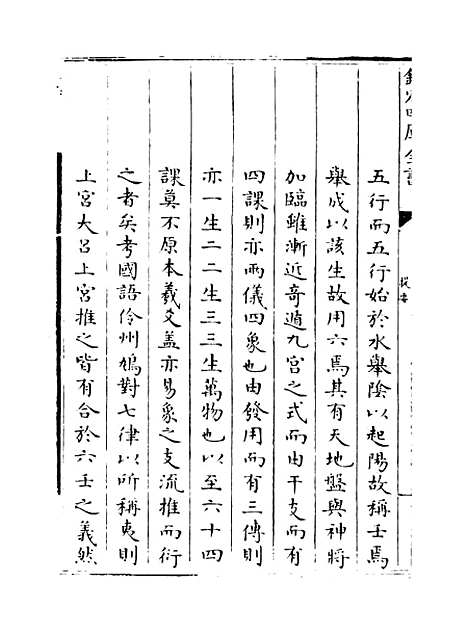 欽定四庫全書
提要
五行而五行始於水舉陰以起陽故稱壬焉
舉成以該生故用六焉其有天地盤與神將
加臨雖漸近奇遁九宮之式而由干支而有
四課則亦兩儀四象也由發用而有三傳則
亦一生二二生三三生萬物也以至六十四
課莫不原本羲爻蓋亦易象之支流推而衍
之者矣考國語伶州鳩對七律以所稱夷則
上宮大呂上宮推之皆有合於六壬之義然